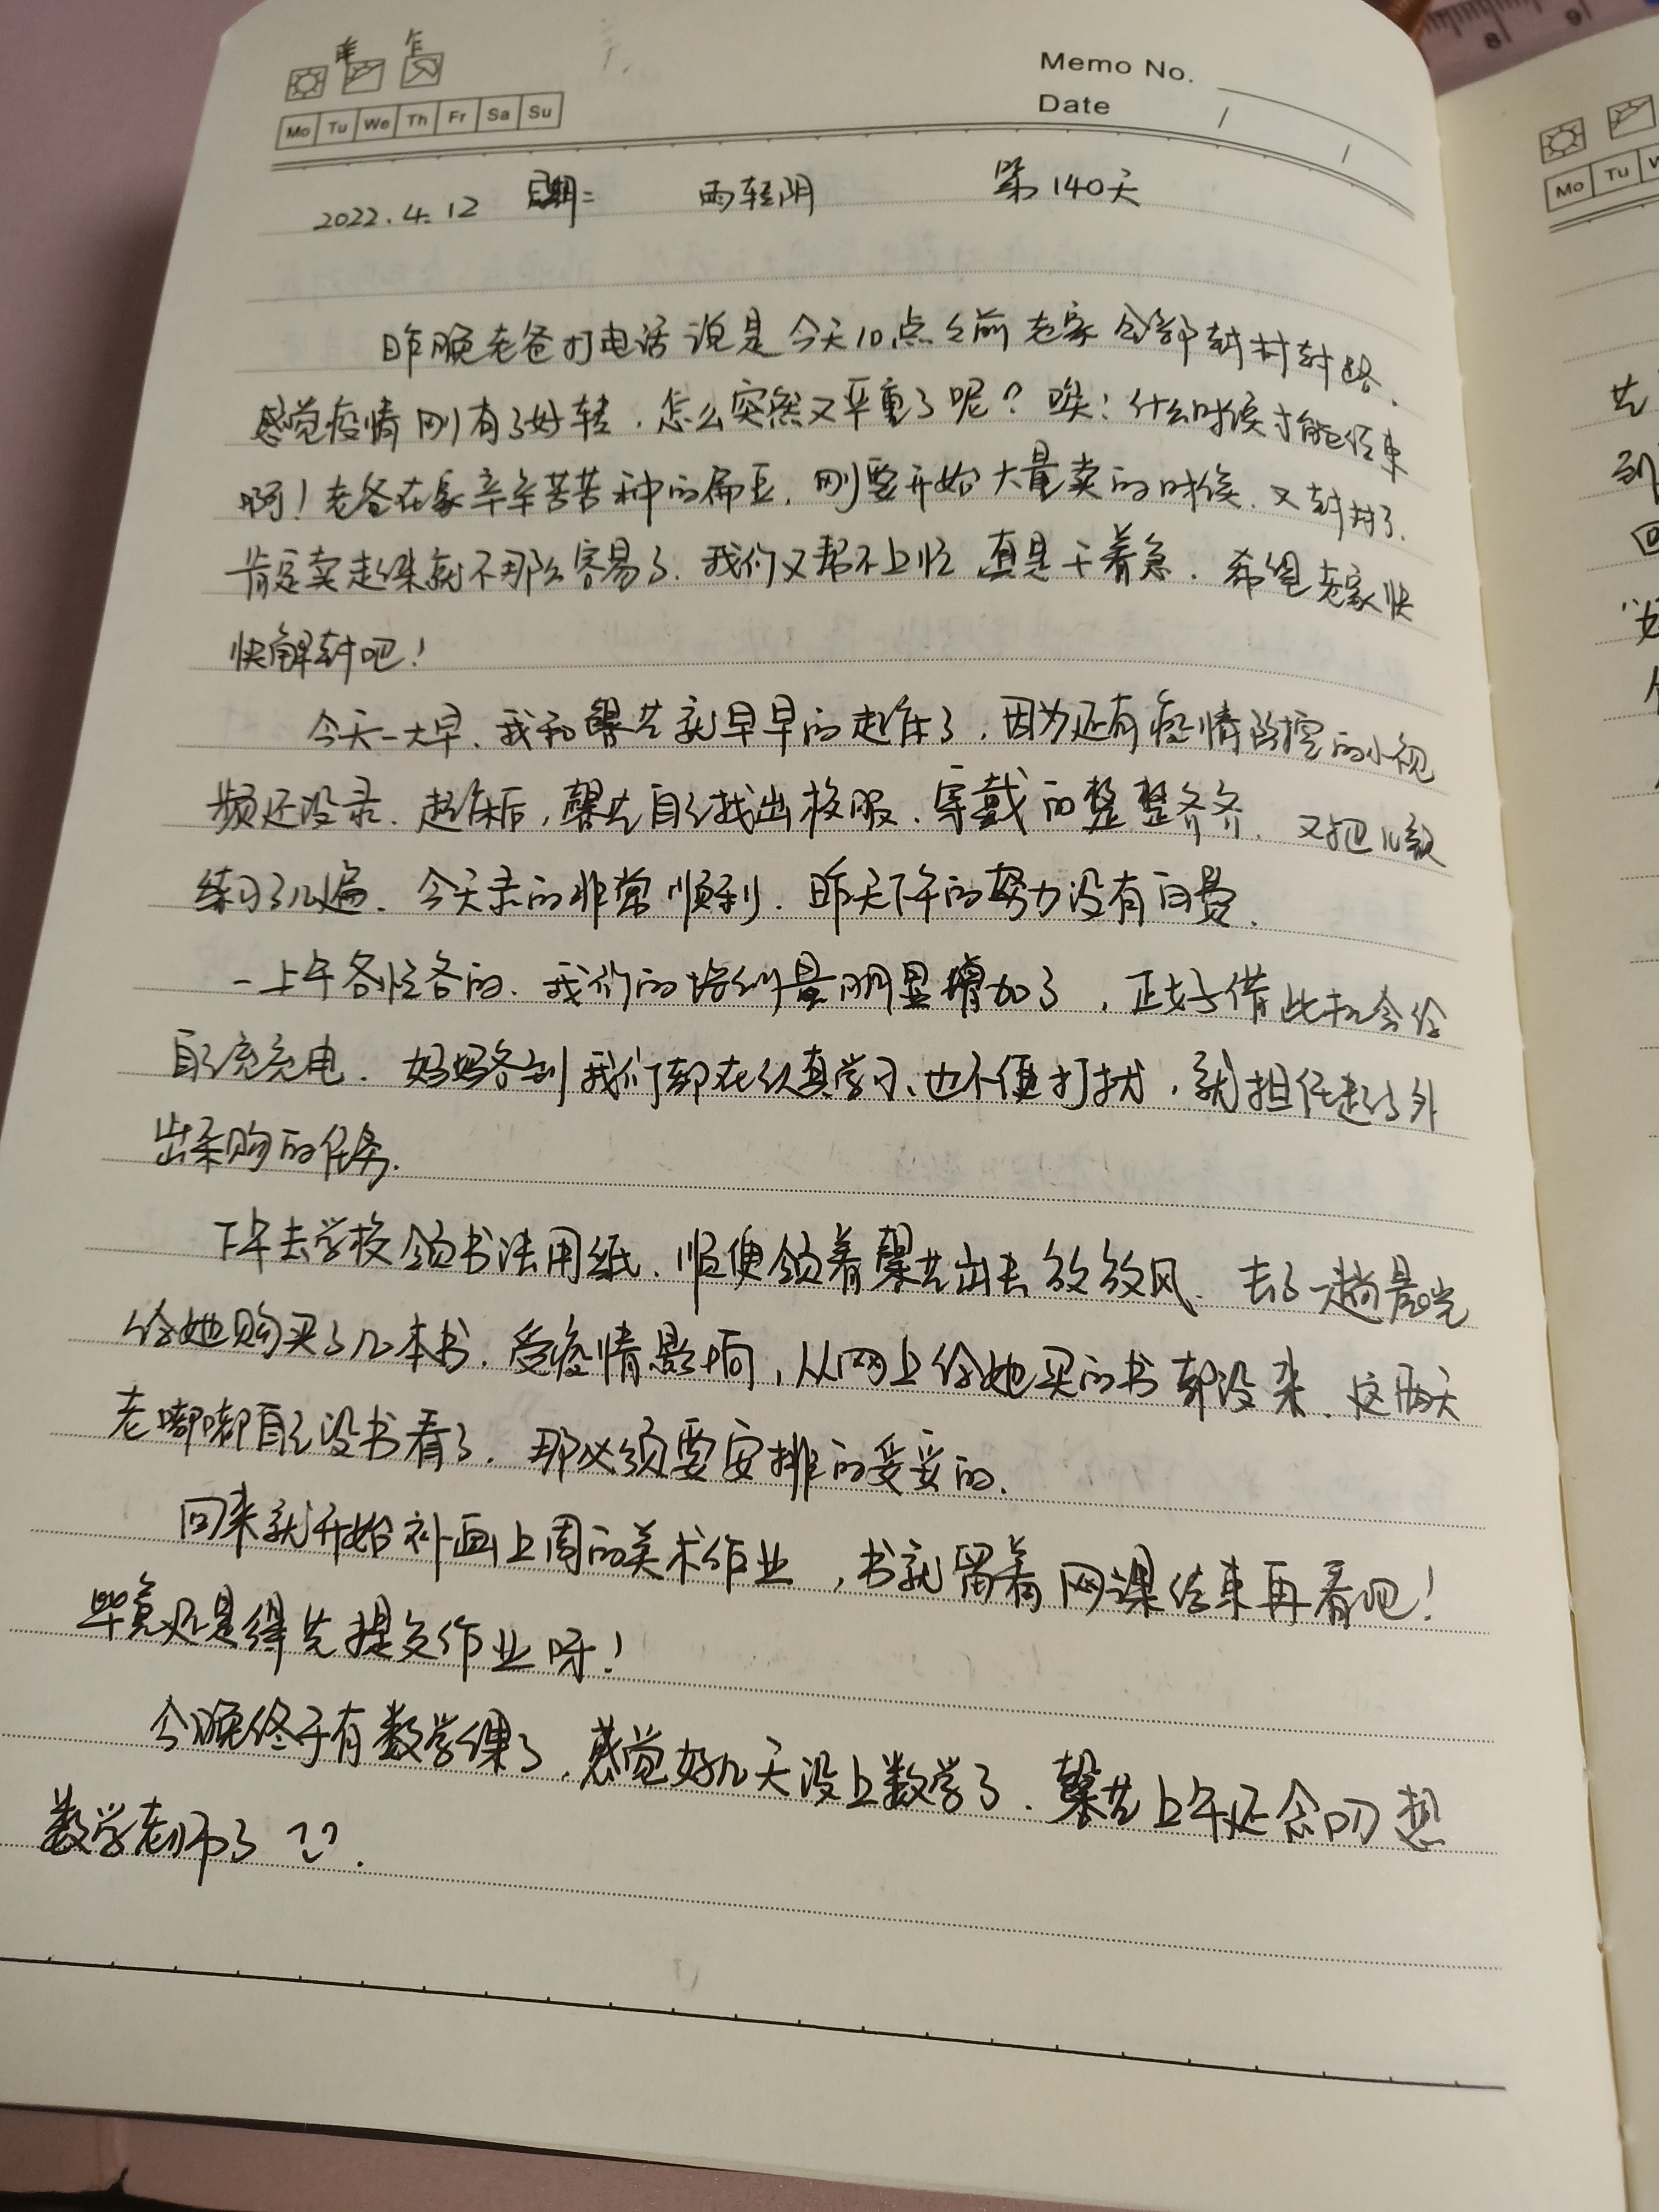 Memo No.
Mo Tu We Th Fr Sa Su
Date / /
2022.4.12 星期二 雨转阴 第140天
昨晚老爸打电话说是今天10点之前老家全部封村封路.
感觉疫情刚有了好转,怎么突然又严重了呢?唉!什么时候才能结束
啊!老爸在家辛辛苦苦种的扁豆,刚要开始大量卖的时候,又封村了.
肯定卖起来就不那么容易了.我们又帮不上忙 真是干着急.希望老家快
快解封吧!
今天一大早,我和馨艺就早早的起床了,因为还有疫情防控的小视
频还没录.起床后,馨艺自己找出校服,穿戴的整整齐齐.又把儿歌
练习了几遍.今天录的非常顺利.昨天下午的努力没有白费.
一上午各忙各的.我们的培训量明显增加了,正好借此机会给
自己充充电.妈妈看到我们都在认真学习,也不便打扰,就担任起了外
出采购的任务.
下午去学校领书法用纸,顺便领着馨艺出去放放风.去了一趟晨光
给她购买了几本书.受疫情影响,从网上给她买的书都没来.这两天
老嘟嘟自己没书看了.那必须要安排的妥妥的.
回来就开始补画上周的美术作业,书就留着网课结束再看吧!
毕竟还是得先提交作业呀!
今晚终于有数学课了,感觉好几天没上数学了.馨艺上午还念叨想
数学老师了.
Mo Tu